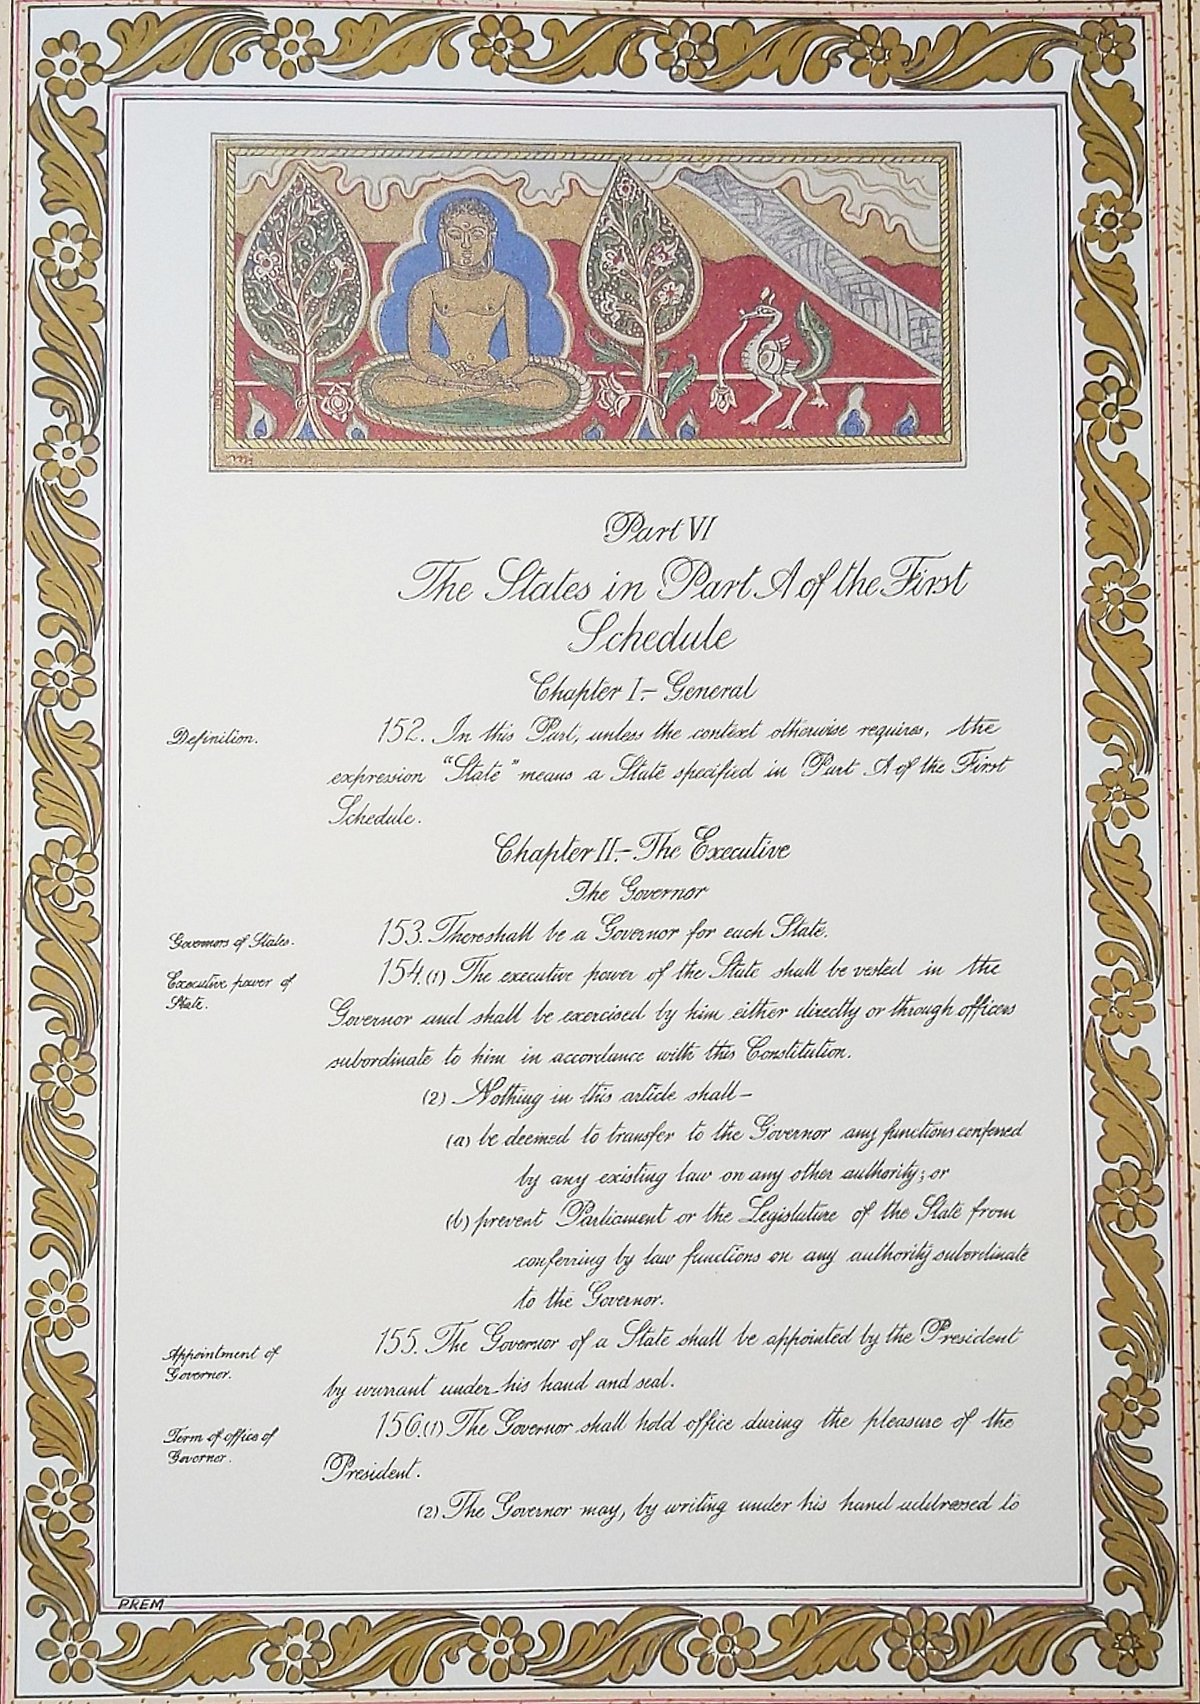 Part VI
The States in Part A of the First
Schedule
Chapter I.- General
Definition.
152. In this Part, unless the context otherwise requires, the
expression "State" means a State specified in Part A of the First
Schedule.
Chapter II.- The Executive
The Governor
Governors of States.
153. There shall be a Governor for each State.
Executive power of
State.
154.(1) The executive power of the State shall be vested in the
Governor and shall be exercised by him either directly or through officers
subordinate to him in accordance with this Constitution.
(2) Nothing in this article shall-
(a) be deemed to transfer to the Governor any functions conferred
by any existing law on any other authority; or
(b) prevent Parliament or the Legislature of the State from
conferring by law functions on any authority subordinate
to the Governor.
Appointment of
Governor.
155. The Governor of a State shall be appointed by the President
by warrant under his hand and seal.
Term of office of
Governor.
156.(1) The Governor shall hold office during the pleasure of the
President.
(2) The Governor may, by writing under his hand addressed to
PREM